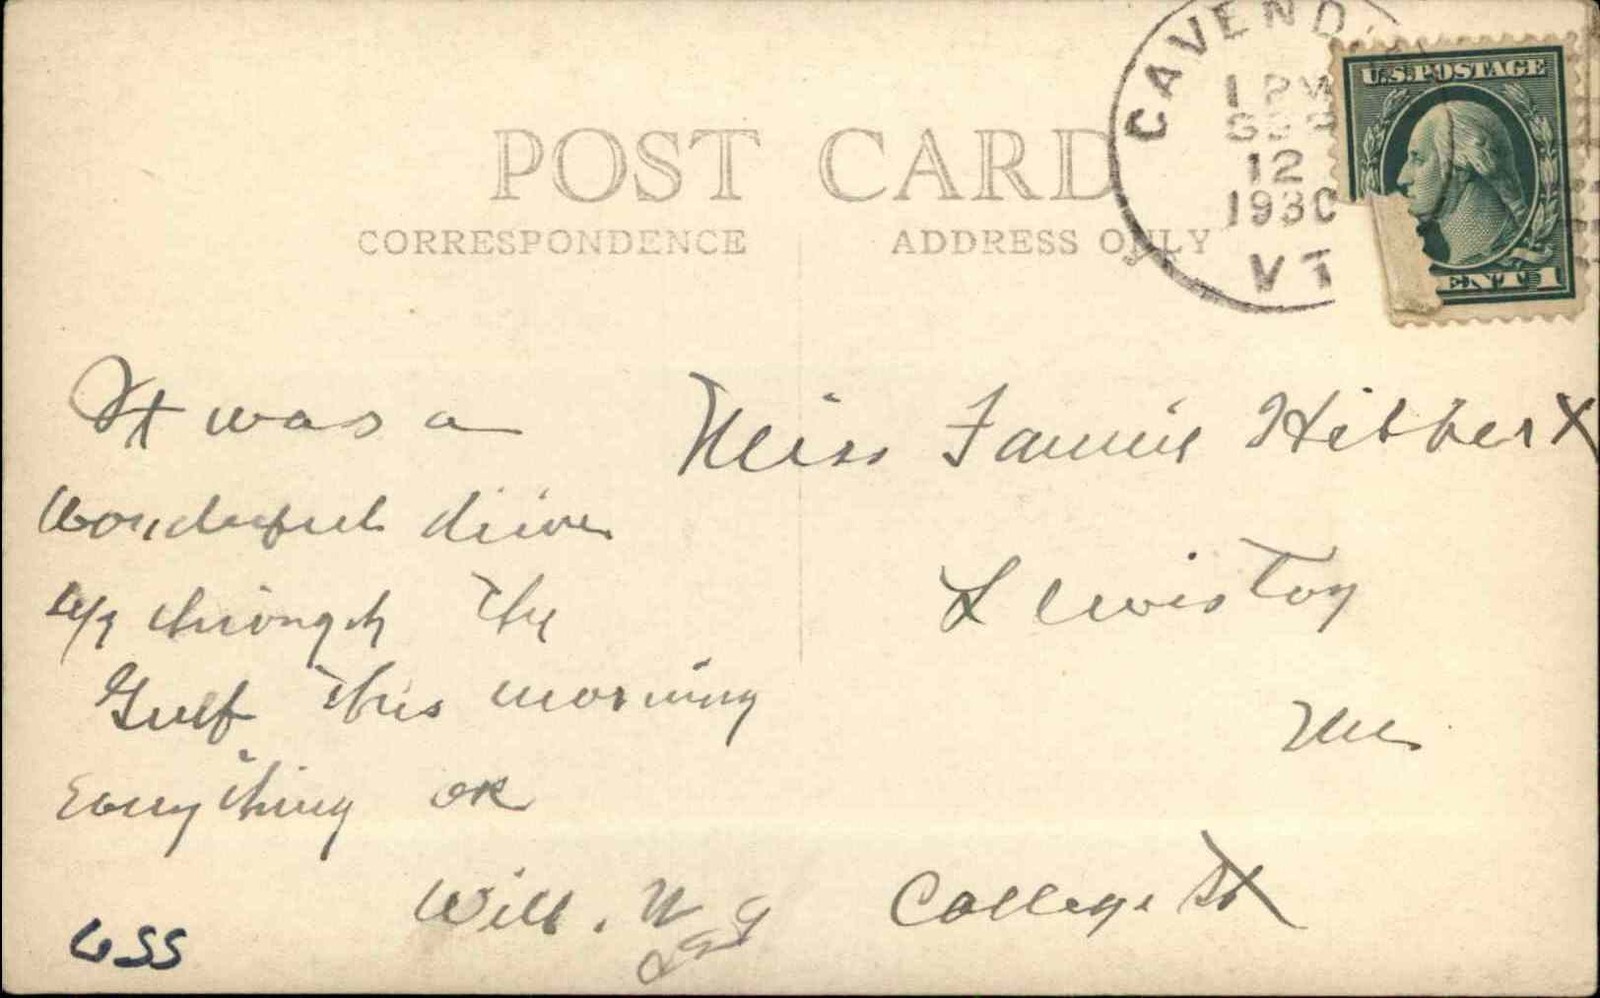 CAVEND
1 PM
SEP
12
1930
VT
U.S. POSTAGE
POST CARD
CORRESPONDENCE
ADDRESS ONLY
It was a
wonderful drive
up through the
Gulf this morning
Everything OK
Will.
Miss Fannie Hibbert
Lewiston
Me
College St